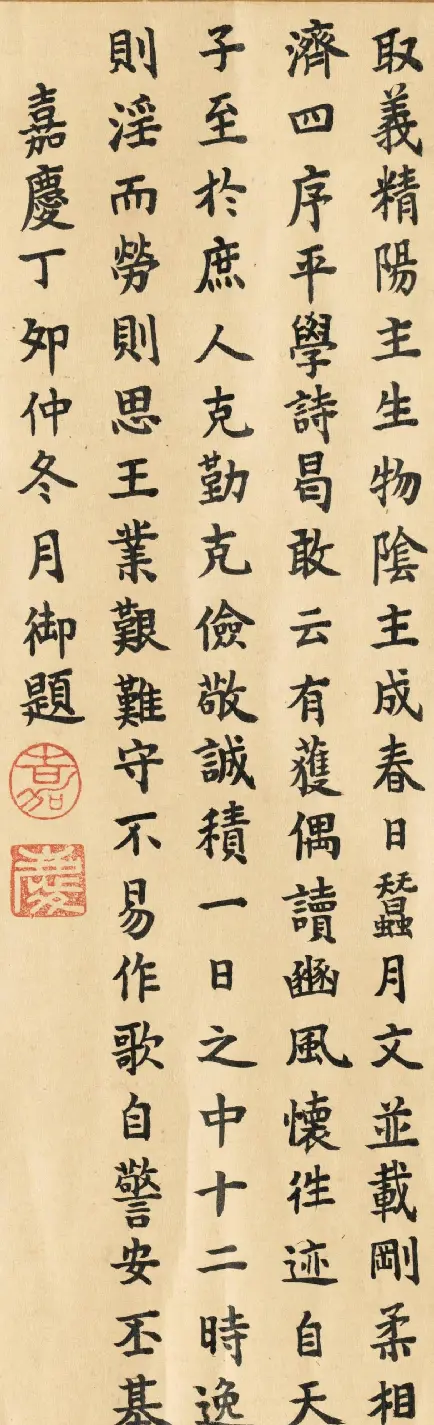 取義精陽主生物陰主成春日蠶月文並載剛柔相
濟四序平學詩曷敢云有獲偶讀豳風懷徃迹自天
子至於庶人克勤克儉敬誠積一日之中十二時逸
則淫而勞則思王業艱難守不易作歌自警安丕基
嘉慶丁夘仲冬月御題
嘉
慶